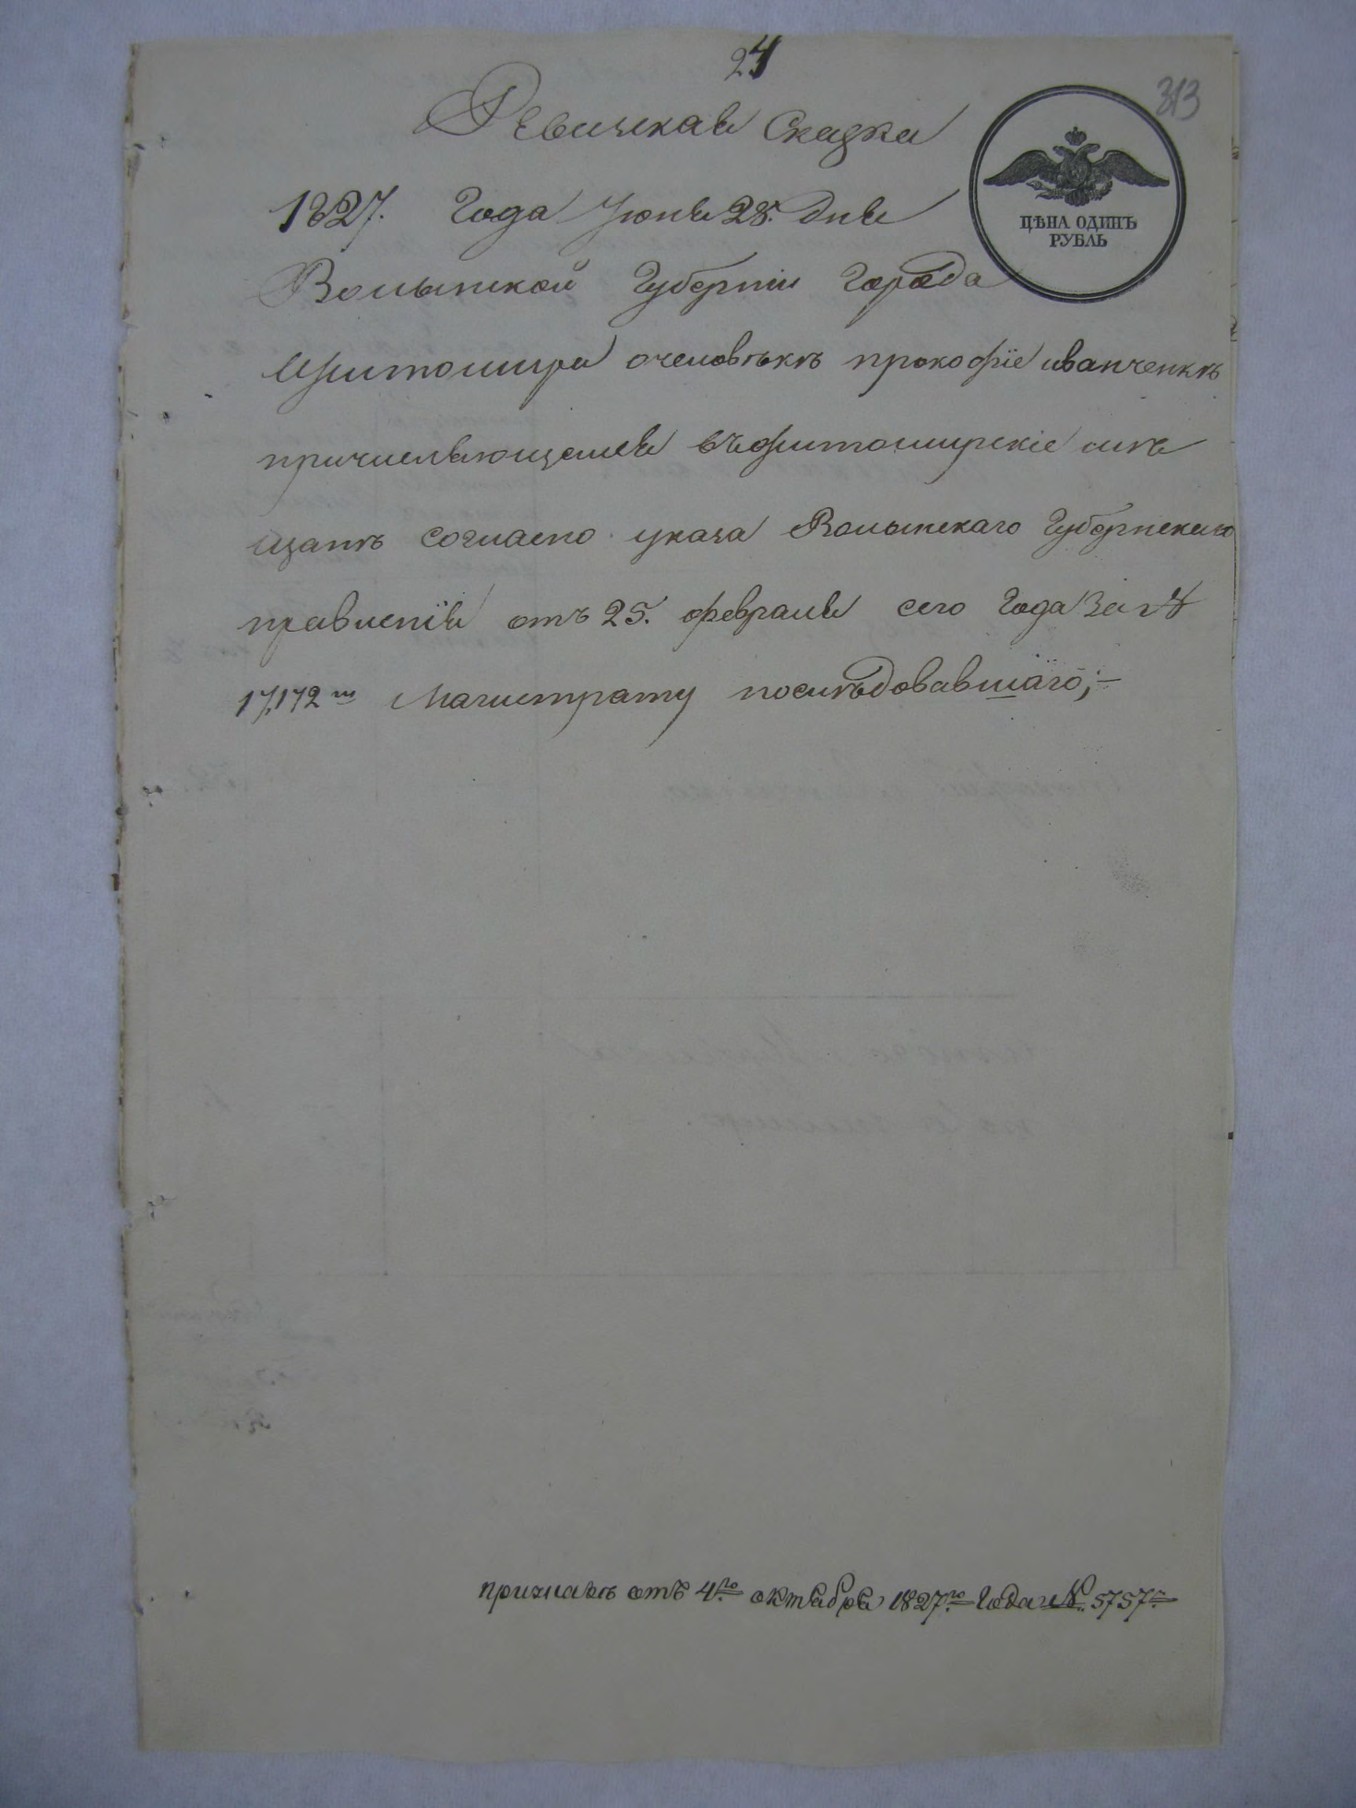 24
313
Ревизская Сказка
ЦѢНА ОДИНЪ
РУБЛЬ
1827. Года Июня 28. дня
Волынской Губерніи Города
Житомира очеловѣкѣ прокофіе иванченкѣ
причисляющемся въ житомирскіе мѣ
щанѣ согласно указа Волынскаго Губернскаго
правленія отъ 25. февраля сего Года За №
17,172м Магистрату послѣдовавшаго;—
приказъ отъ 4го октября 1827го Года № 5757м